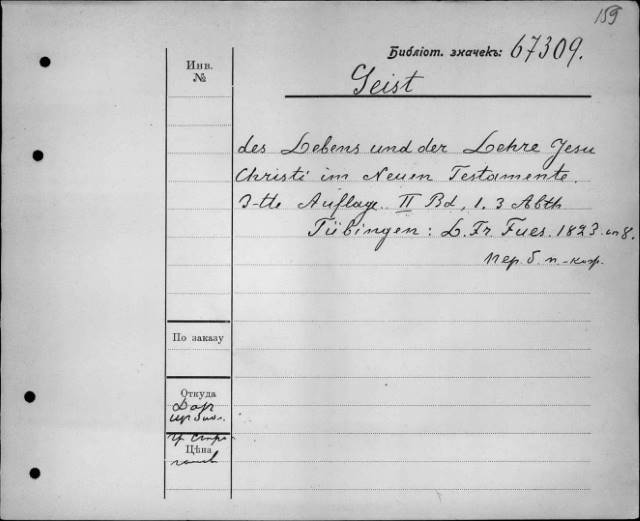 159
Библіот. значекъ: 67309.
Инв.
№
Geist
des Lebens und der Lehre Jesu
Christi im Neuen Testamente.
3-tte Auflage. II Bd, 1. 3 Abth
Tübingen: L. Fr. Fues. 1823. in 8.
пер. б. п.-кор.
По заказу
Откуда
Дар
гр. Стро-
Цѣна